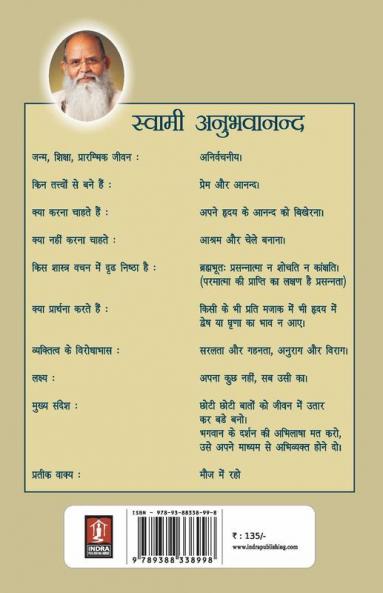 स्वामी अनुभवानन्द
जन्म, शिक्षा, प्रारम्भिक जीवन : अनिर्वचनीय।
किन तत्त्वों से बने हैं : प्रेम और आनन्द।
क्या करना चाहते हैं : अपने हृदय के आनन्द को बिखेरना।
क्या नहीं करना चाहते : आश्रम और चेले बनाना।
किस शास्त्र वचन में दृढ निष्ठा है : ब्रह्मभूतः प्रसन्नात्मा न शोचति न कांक्षति।
(परमात्मा की प्राप्ति का लक्षण है प्रसन्नता)
क्या प्रार्थना करते हैं : किसी के भी प्रति मजाक में भी हृदय में
द्वेष या घृणा का भाव न आए।
व्यक्तित्व के विरोधाभास : सरलता और गहनता, अनुराग और विराग।
लक्ष्य : अपना कुछ नहीं, सब उसी का।
मुख्य संदेश : छोटी छोटी बातों को जीवन में उतार
कर बडे बनो।
भगवान के दर्शन की अभिलाषा मत करो,
उसे अपने माध्यम से अभिव्यक्त होने दो।
प्रतीक वाक्य : मौज में रहो
ISBN - 978-93-88338-99-8
INDRA
9 789388 338998
₹ : 135/-
www.indrapublishing.com